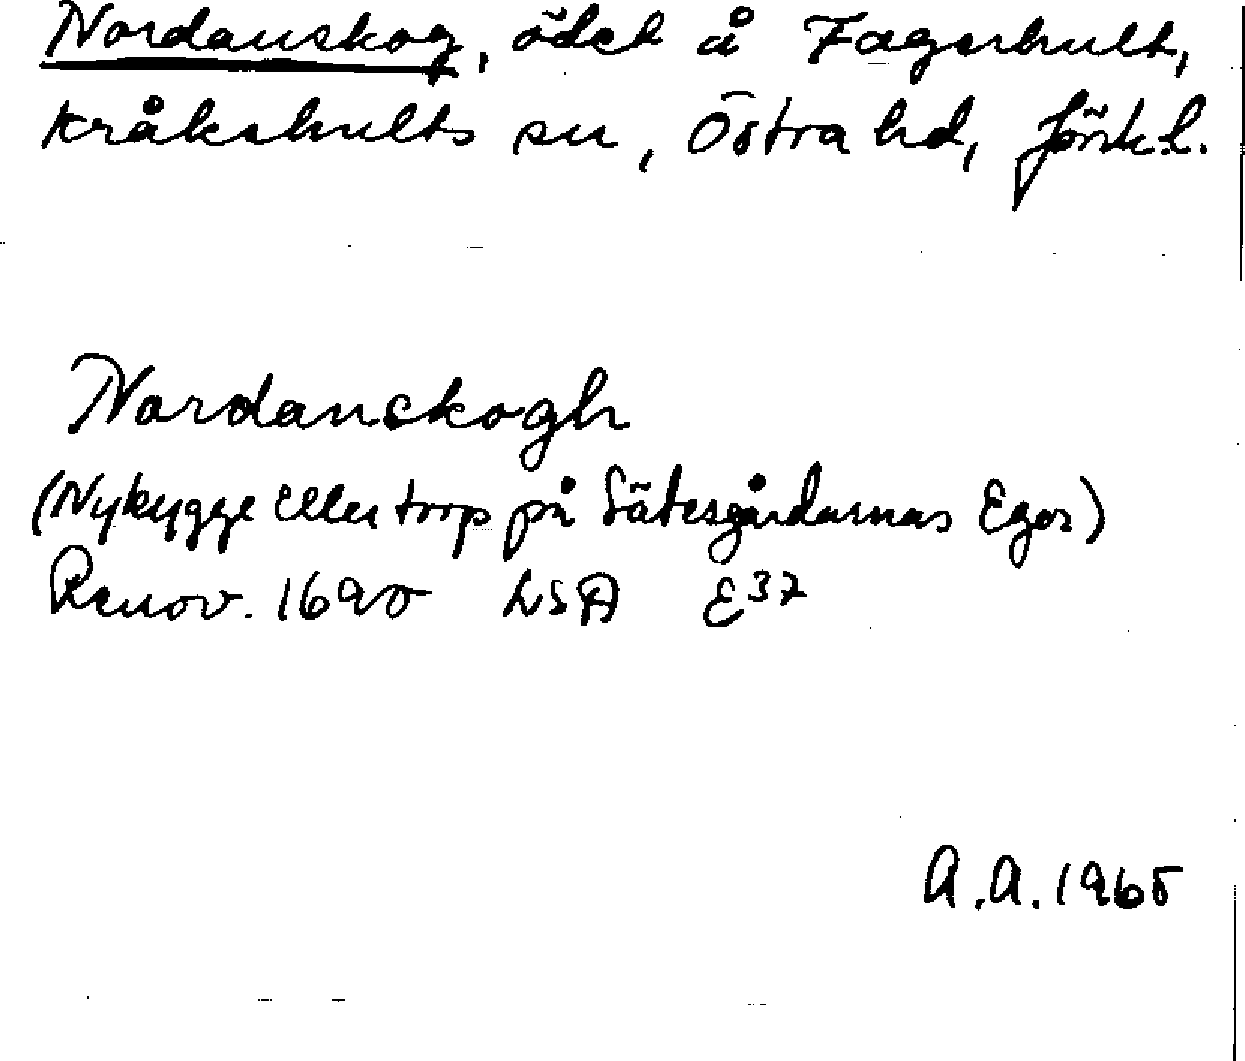 Nordanskog, ödel å Fagerhult,
Kråkshults sn, Östra hd, Jönk.l.
Nordanskogh
(Nybygge eller torp på Sätesgårdarnas Egor)
Renov. 1690 LSA E37
A.A. 1965